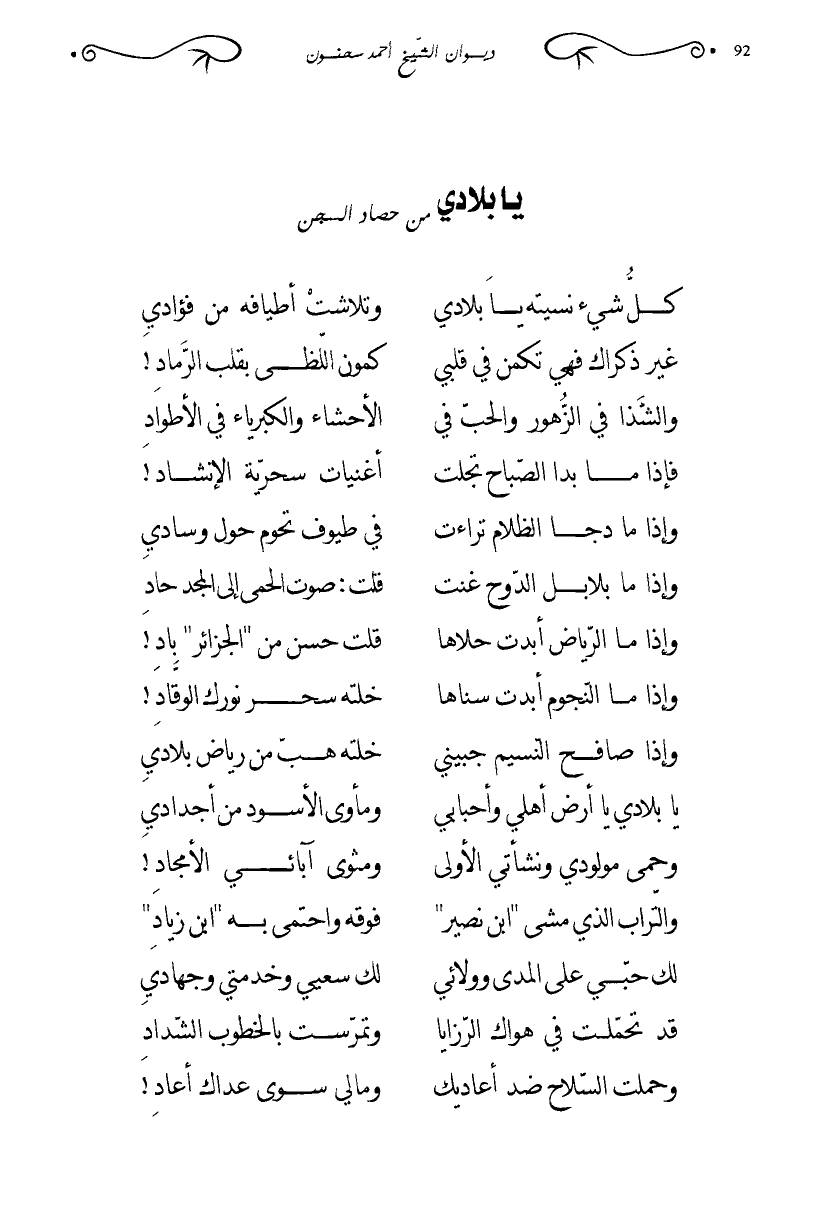 92 ديـوان الشّيخ أحمد سحنـون
يـا بلادي من حصاد السـجن
كــلُّ شيء نسيته يــا بلادي وتلاشتْ أطيافه من فؤادي
غير ذكراك فهي تكمن في قلبي كمون اللّظــى بقلب الرّمادِ!
والشّذا في الزُّهور والحبّ في الأحشاء والكبرياء في الأطوادِ
فإذا مــا بدا الصّباح تجلت أغنيات سحريّة الإنشــادِ!
وإذا ما دجــا الظلام تراءت في طيوف تحوم حول وسادي
وإذا ما بلابــل الدّوح غنت قلت: صوت الحمى إلى المجد حادِ
وإذا مـا الرّياض أبدت حلاها قلت حسن من "الجزائر" بادٍ!
وإذا مـا النّجوم أبدت سناها خلته سحــر نورك الوقادِ!
وإذا صافــح النّسيم جبيني خلته هــبّ من رياض بلادي
يا بلادي يا أرض أهلي وأحبابي ومأوى الأســود من أجدادي
وحمى مولودي ونشأتي الأولى ومثوى آبائــي الأمجادِ!
والتّراب الذي مشى "ابن نصير" فوقه واحتمى بــه "ابن زيادِ"
لك حبّــي على المدى وولائي لك سعيي وخدمتي وجهادي
قد تحمّلـت في هواك الرّزايا وتمرّســت بالخطوب الشّدادِ
وحملت السّلاح ضد أعاديك ومالي ســوى عداك أعادِ!